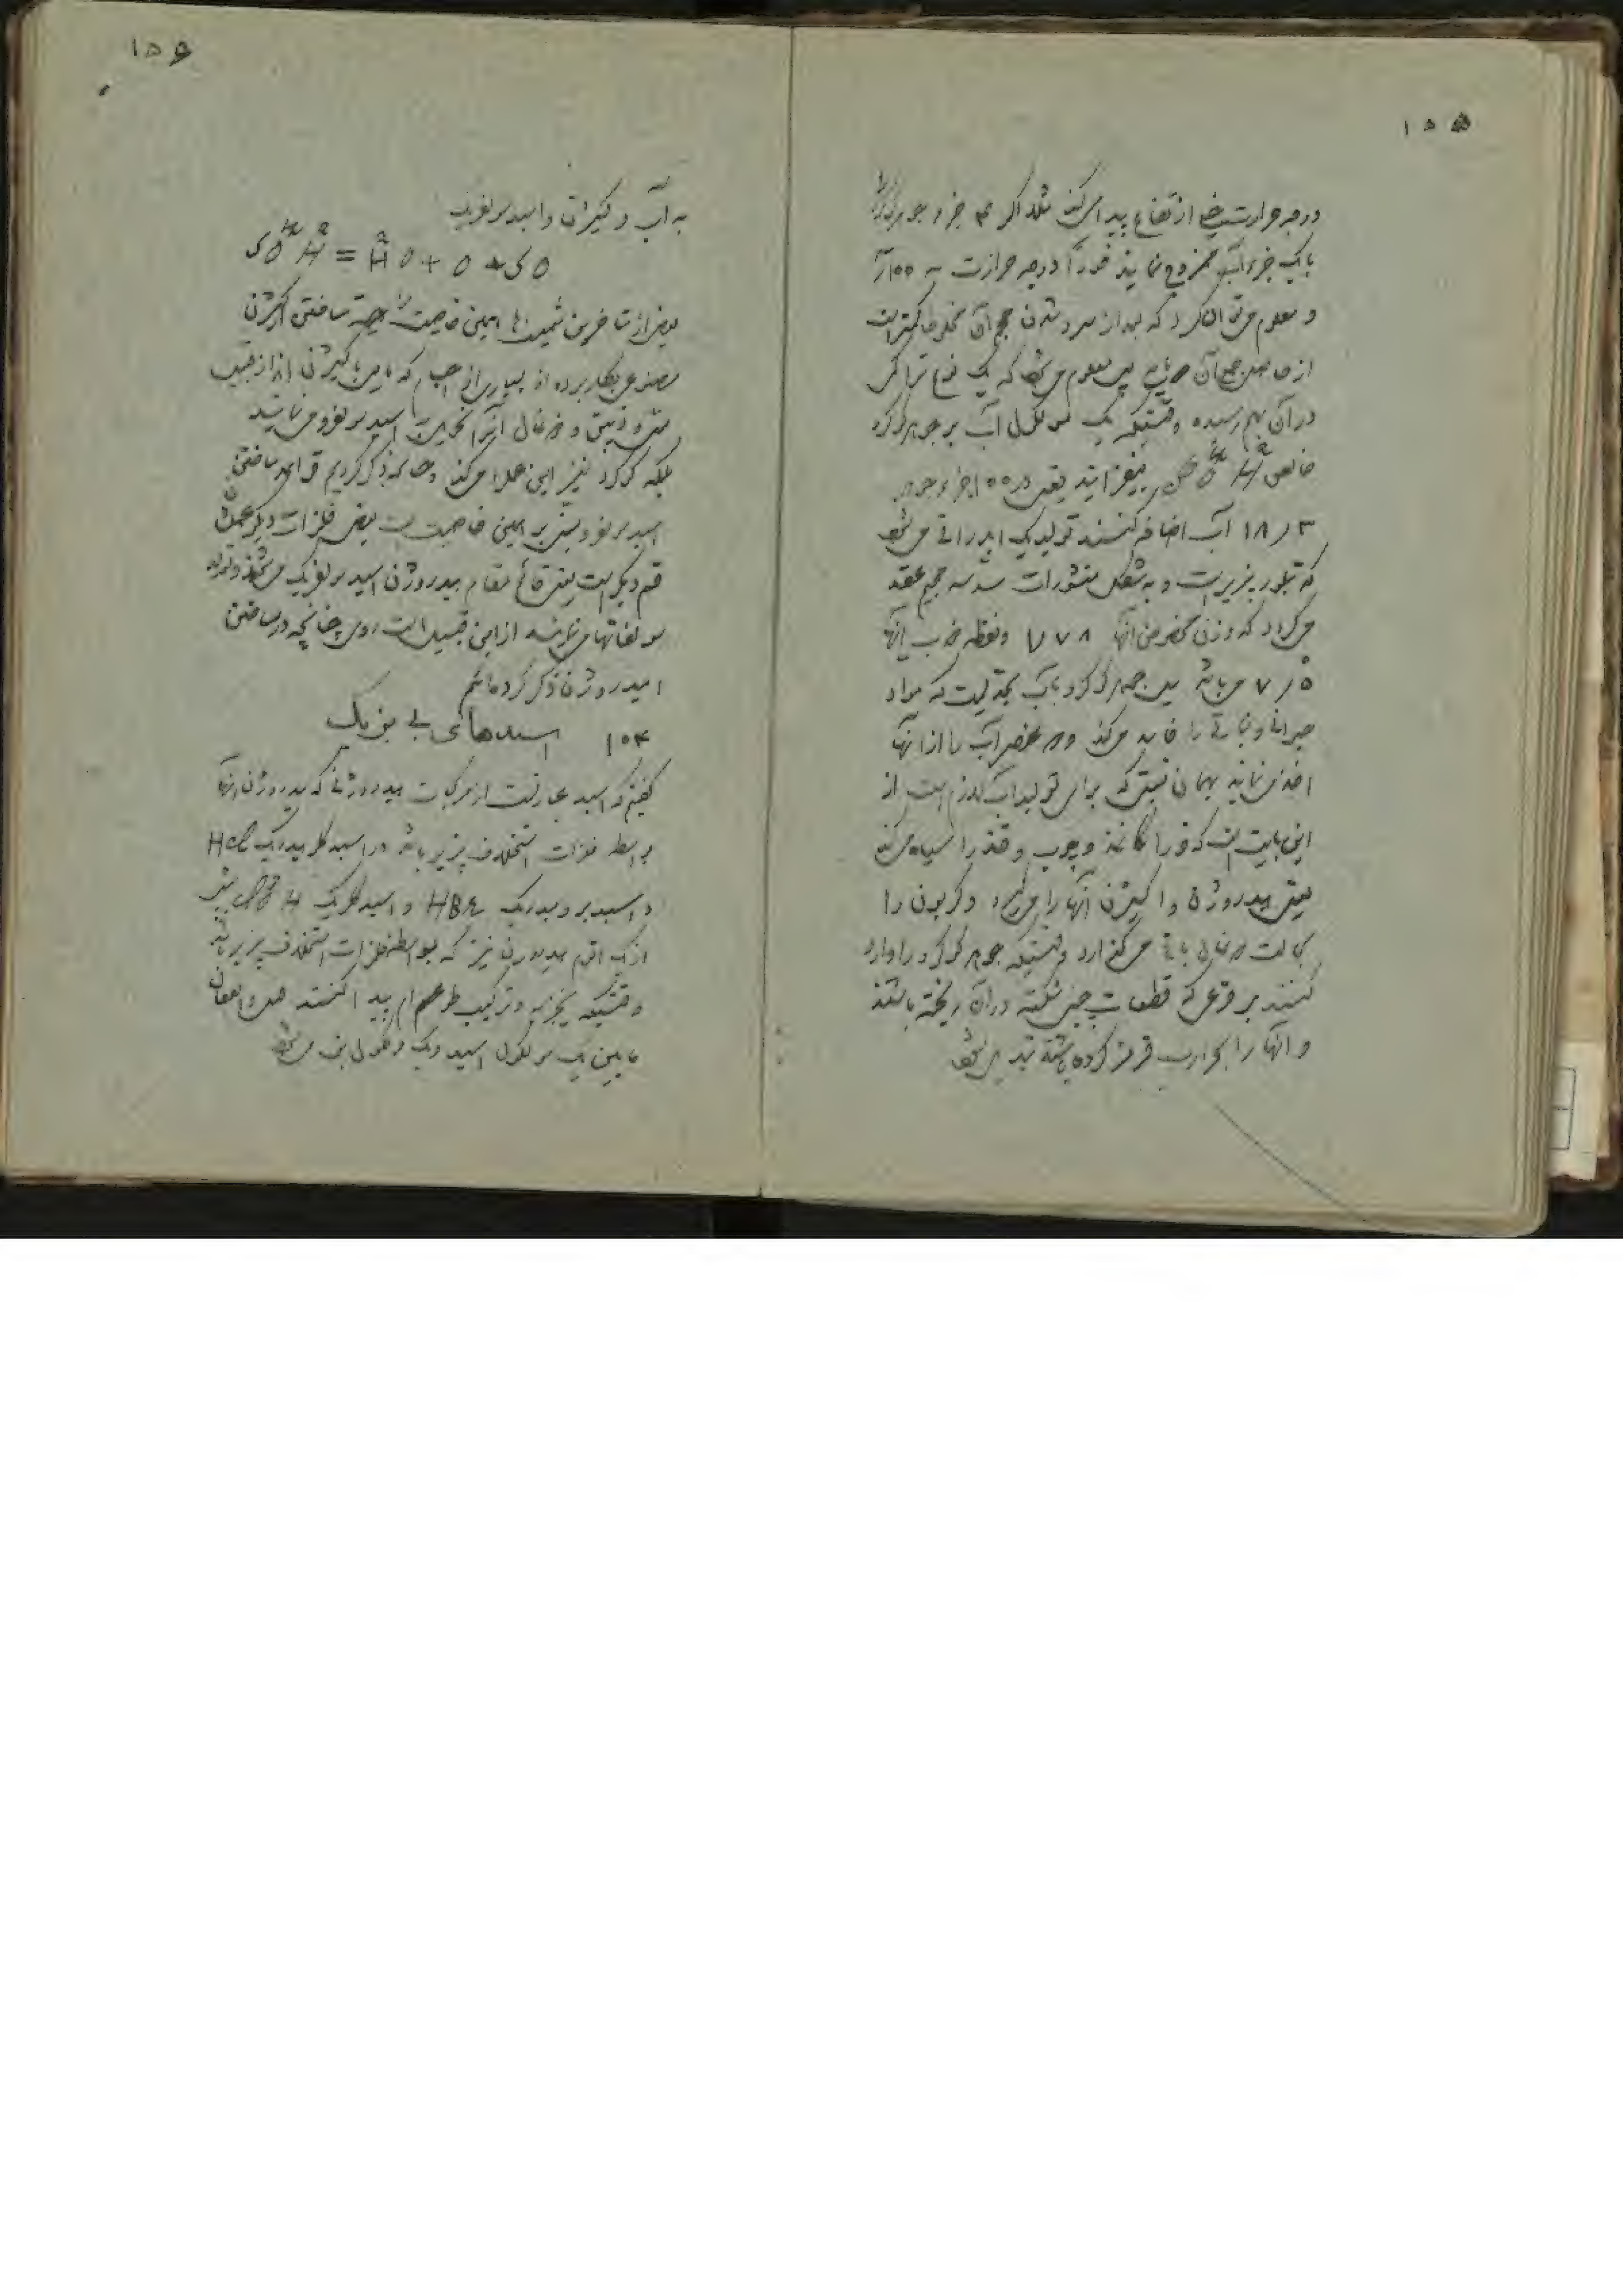 ۱۵۵
درجه حرارتش خیلی ارتفاع پیدا میکند مثلا اگر ۴ جزء جوهر گوگرد را
با یک جزء آب ممزوج نمایند فوراً درجه حرارت به ۱۰۰
و معلوم میتوان کرد که بعد از سرد شدن حجم آن مخلوط کمتر است
از حاصل جمع آن پس معلوم میشود که یک نوع تراکمی
در آن بهم رسیده وقتیکه یک مولکول آب بر جوهر گوگرد
خالص بیفزایند یعنی در ۱۰۰ جزء جوهر
۱۸/۳ آب اضافه کنند تولید یک ایدراتی میشود
که تبلور پذیر است و به شکل منشورات مسدسه حجیم عقد
میگردد که وزن مخصوص آنها ۱/۷۸ و نقطه ذوب آنها
۷/۵ میباشد میل جوهر گوگرد بآب بحدیست که مواد
حیوانی و نباتی را فاسد میکند و عنصر آب را از آنها
اخذ مینماید بهمان نسبتی که برای تولید آب لازم است از
این بابت است که فوراً کاغذ و چوب و قند را سیاه میکند
یعنی هیدروژن و اکسیژن آنها را میگیرد و کربون را
بحالت ذغال باقی میگذارد وقتیکه جوهر گوگرد را وارد
کنند بر قرعی که قطعات چینی شکسته در آن ریخته باشند
و آنها را بحرارت قرمز کرده باشند تجزیه میشود
۱۵۶
به آب و اکسیژن و اسید سولفوریک
SO⁴H² = H²O + O + SO
بعضی از متاخرین شیمیست‌ها همین خاصیت را بجهة ساختن اکسیژن
مصنوعی بکار برده‌اند بسیاری از اجسام که مایل باکسیژن‌اند از قبیل
مس و زیبق و ذغال آنرا تحلیل به اسید سولفورو مینمایند
بلکه گوگرد نیز این عمل را میکند چنانکه ذکر کردیم در ساختن
اسید سولفورو مبنی بر همین خاصیت است بعضی فلزات دیگر عملشان
قسم دیگر است یعنی قائم مقام هیدروژن اسید سولفوریک میشوند و تولید
سولفاتها مینمایند از این قبیل است روی چنانچه در ساختن
هیدروژن ذکر کرده‌ایم
۱۰۴ اسیدهای بی بزیک
گفتیم که اسید عبارتست از مرکبات هیدروژنی که هیدروژن آنها
بواسطه فلزات استخلاف پذیر باشد در اسید کلریدریک HCl
و اسید برومیدریک HBr و اسید کلریک بیش
از یک اتم هیدروژن نیست که بواسطه فلزات استخلاف پذیر باشد
وقتیکه تجزیه و ترکیب طرفین پیدا کنند عمل و انفعال
مابین یک مولکول اسید و یک مولکول باز میشود